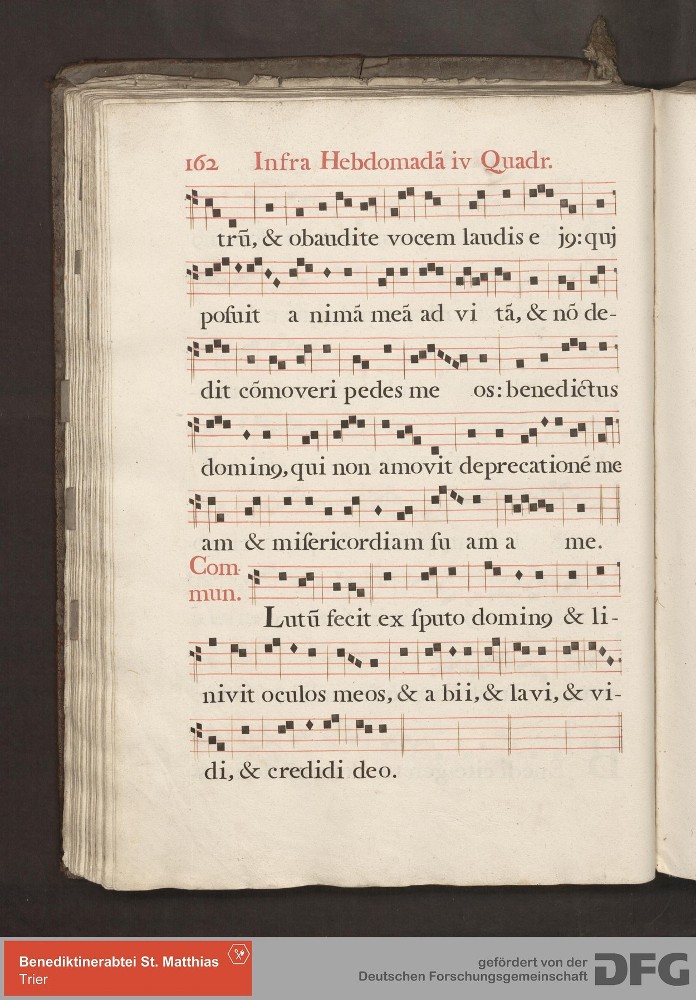 162 Infra Hebdomadã iv Quadr.
trũ, & obaudite vocem laudis e j9: quj
poſuit a nimã meã ad vi tã, & nõ de-
dit cõmoveri pedes me os: benedictus
domin9, qui non amovit deprecationẽ me
am & miſericordiam ſu am a me.
Com-
mun.
Lutũ fecit ex ſputo domin9 & li-
nivit oculos meos, & a bii, & lavi, & vi-
di, & credidi deo.
Benediktinerabtei St. Matthias
Trier
gefördert von der
Deutschen Forschungsgemeinschaft
DFG